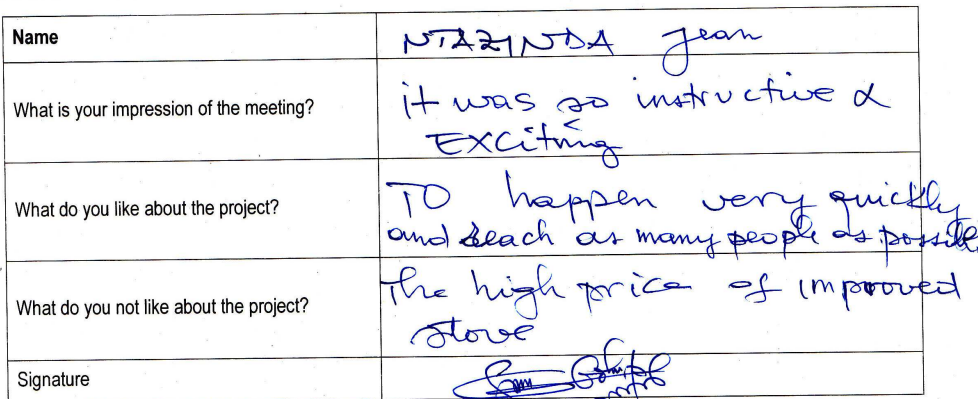 Name
NTAZINDA Jean
What is your impression of the meeting?
it was so instructive &
EXCiting
What do you like about the project?
TO happen very quickly
and reach as many people as possible
What do you not like about the project?
The high price of improved
stove
Signature